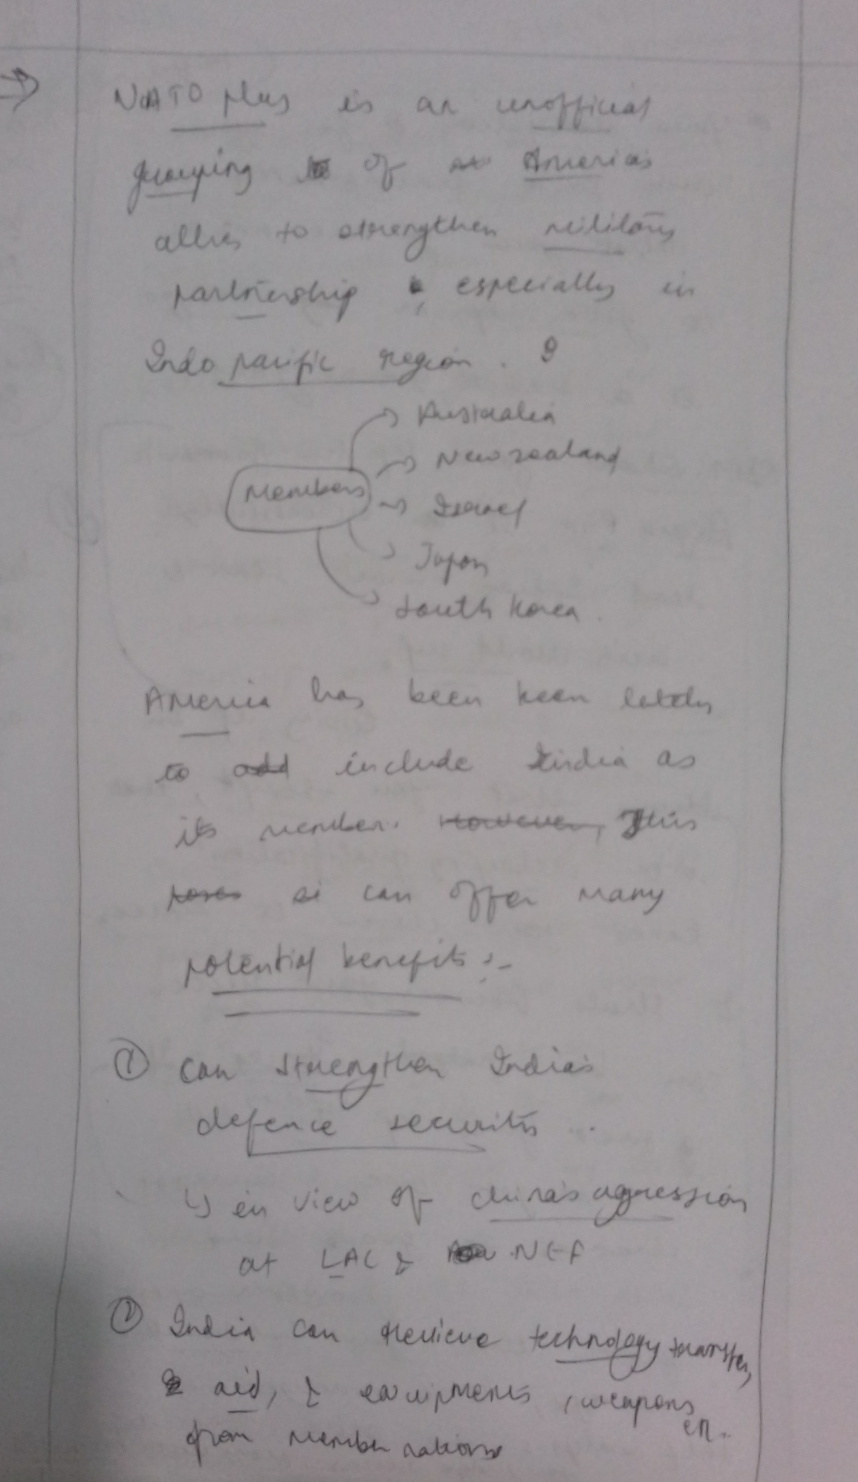 NATO plus is an unofficial
grouping of America's
allies to strengthen military
partnership, especially in
Indo pacific region.
Australia
New zealand
Members
Israel
Japan
South Korea.
America has been keen lately
to add include India as
its member. However, This
poses can offer many
potential benefits :-
① can strengthen India's
defence security
↳ in view of china's agression
at LAC & NEF
② India can recieve technology transfer,
aid, & equipments, weapons
from member nations